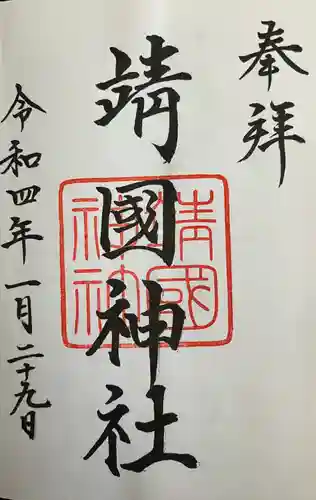 奉拝
靖國神社
靖國神社
令和四年一月二十九日